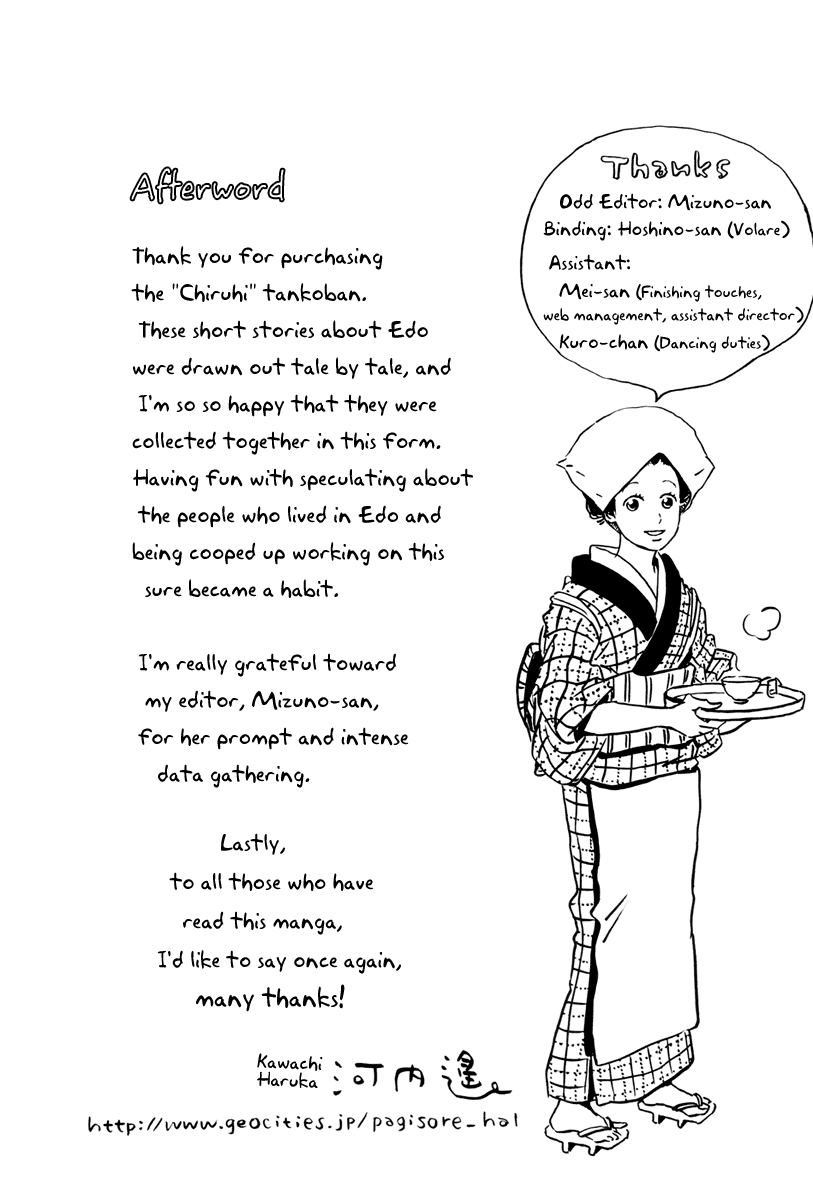 Afterword
Thank you for purchasing
the "Chiruhi" tankoban.
These short stories about Edo
were drawn out tale by tale, and
I'm so so happy that they were
collected together in this form.
Having fun with speculating about
the people who lived in Edo and
being cooped up working on this
sure became a habit.
I'm really grateful toward
my editor, Mizuno-san,
for her prompt and intense
data gathering.
Lastly,
to all those who have
read this manga,
I'd like to say once again,
many thanks!
Kawachi
Haruka
河内遙
http://www.geocities.jp/pagisore_hal
Thanks
Odd Editor: Mizuno-san
Binding: Hoshino-san (Volare)
Assistant:
Mei-san (Finishing touches,
web management, assistant director)
Kuro-chan (Dancing duties)